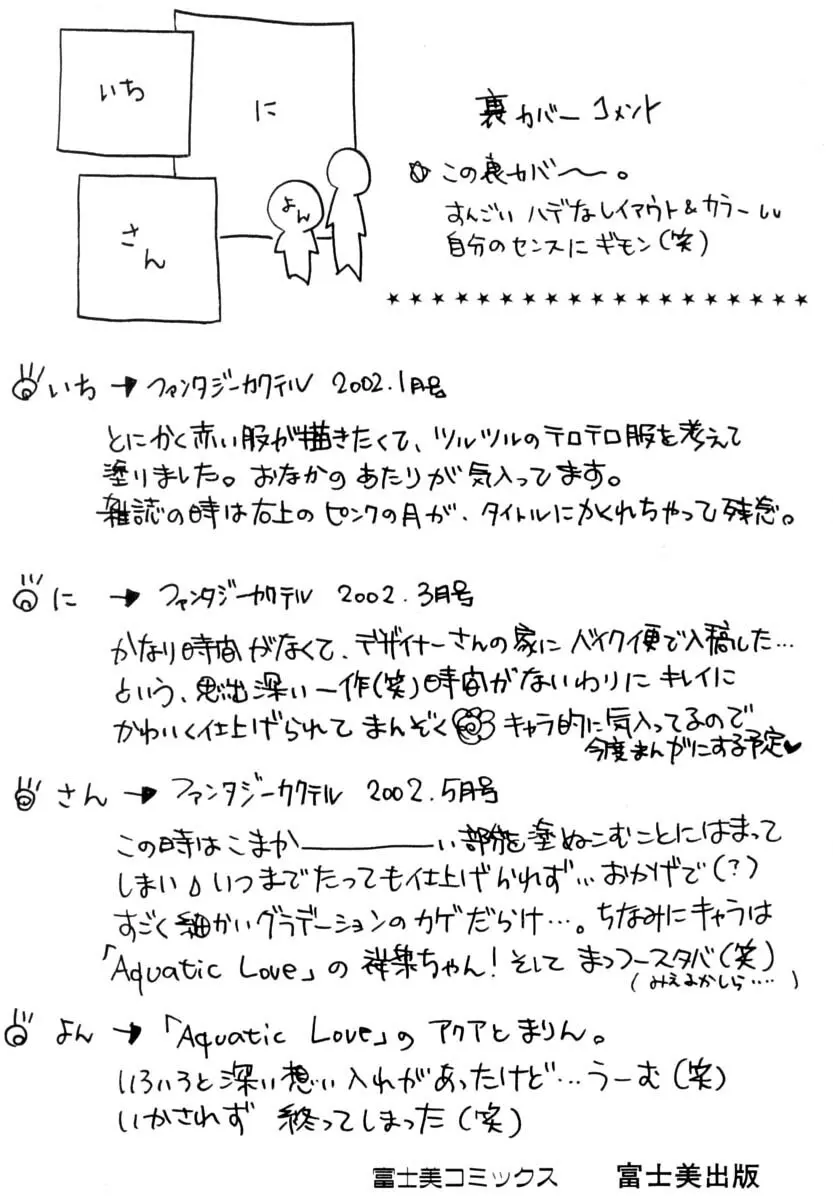 いち
に
さん
よん
裏カバーコメント
この裏カバ〜。
すんごいハデなレイアウト&カラーしい
自分のセンスにギモン(笑)
★★★★★★★★★★★★★★★★★★★
いち → ファンタジーカクテル 2002.1月号
とにかく赤い服が描きたくて、ツルツルのテロテロ服を考えて
塗りました。おなかのあたりが気入ってます。
雑誌の時は右上のピンクの月が、タイトルにかくれちゃって残念。
に → ファンタジーカクテル 2002.3月号
かなり時間がなくて、デザイナーさんの家にバイク便で入稿した…
という、思出深い一作(笑)時間がないわりにキレイに
かわいく仕上げられてまんぞく キャラ的に気入ってるので
今度まんがにする予定♥
さん → ファンタジーカクテル 2002.5月号
この時はこまか――――い部分を塗ぬこむことにはまって
しまい いつまでたっても仕上げられず… おかげで(?)
すごく細かいグラデーションのカゲだらけ…。ちなみにキャラは
「Aquatic Love」の ちゃん!そして まっつースタバ(笑)
(みえるかしら….)
よん → 「Aquatic Love」のアクアとまりん。
いろいろと深い想い入れがあったけど…うーむ(笑)
いかされず 終ってしまった(笑)
富士美コミックス 富士美出版